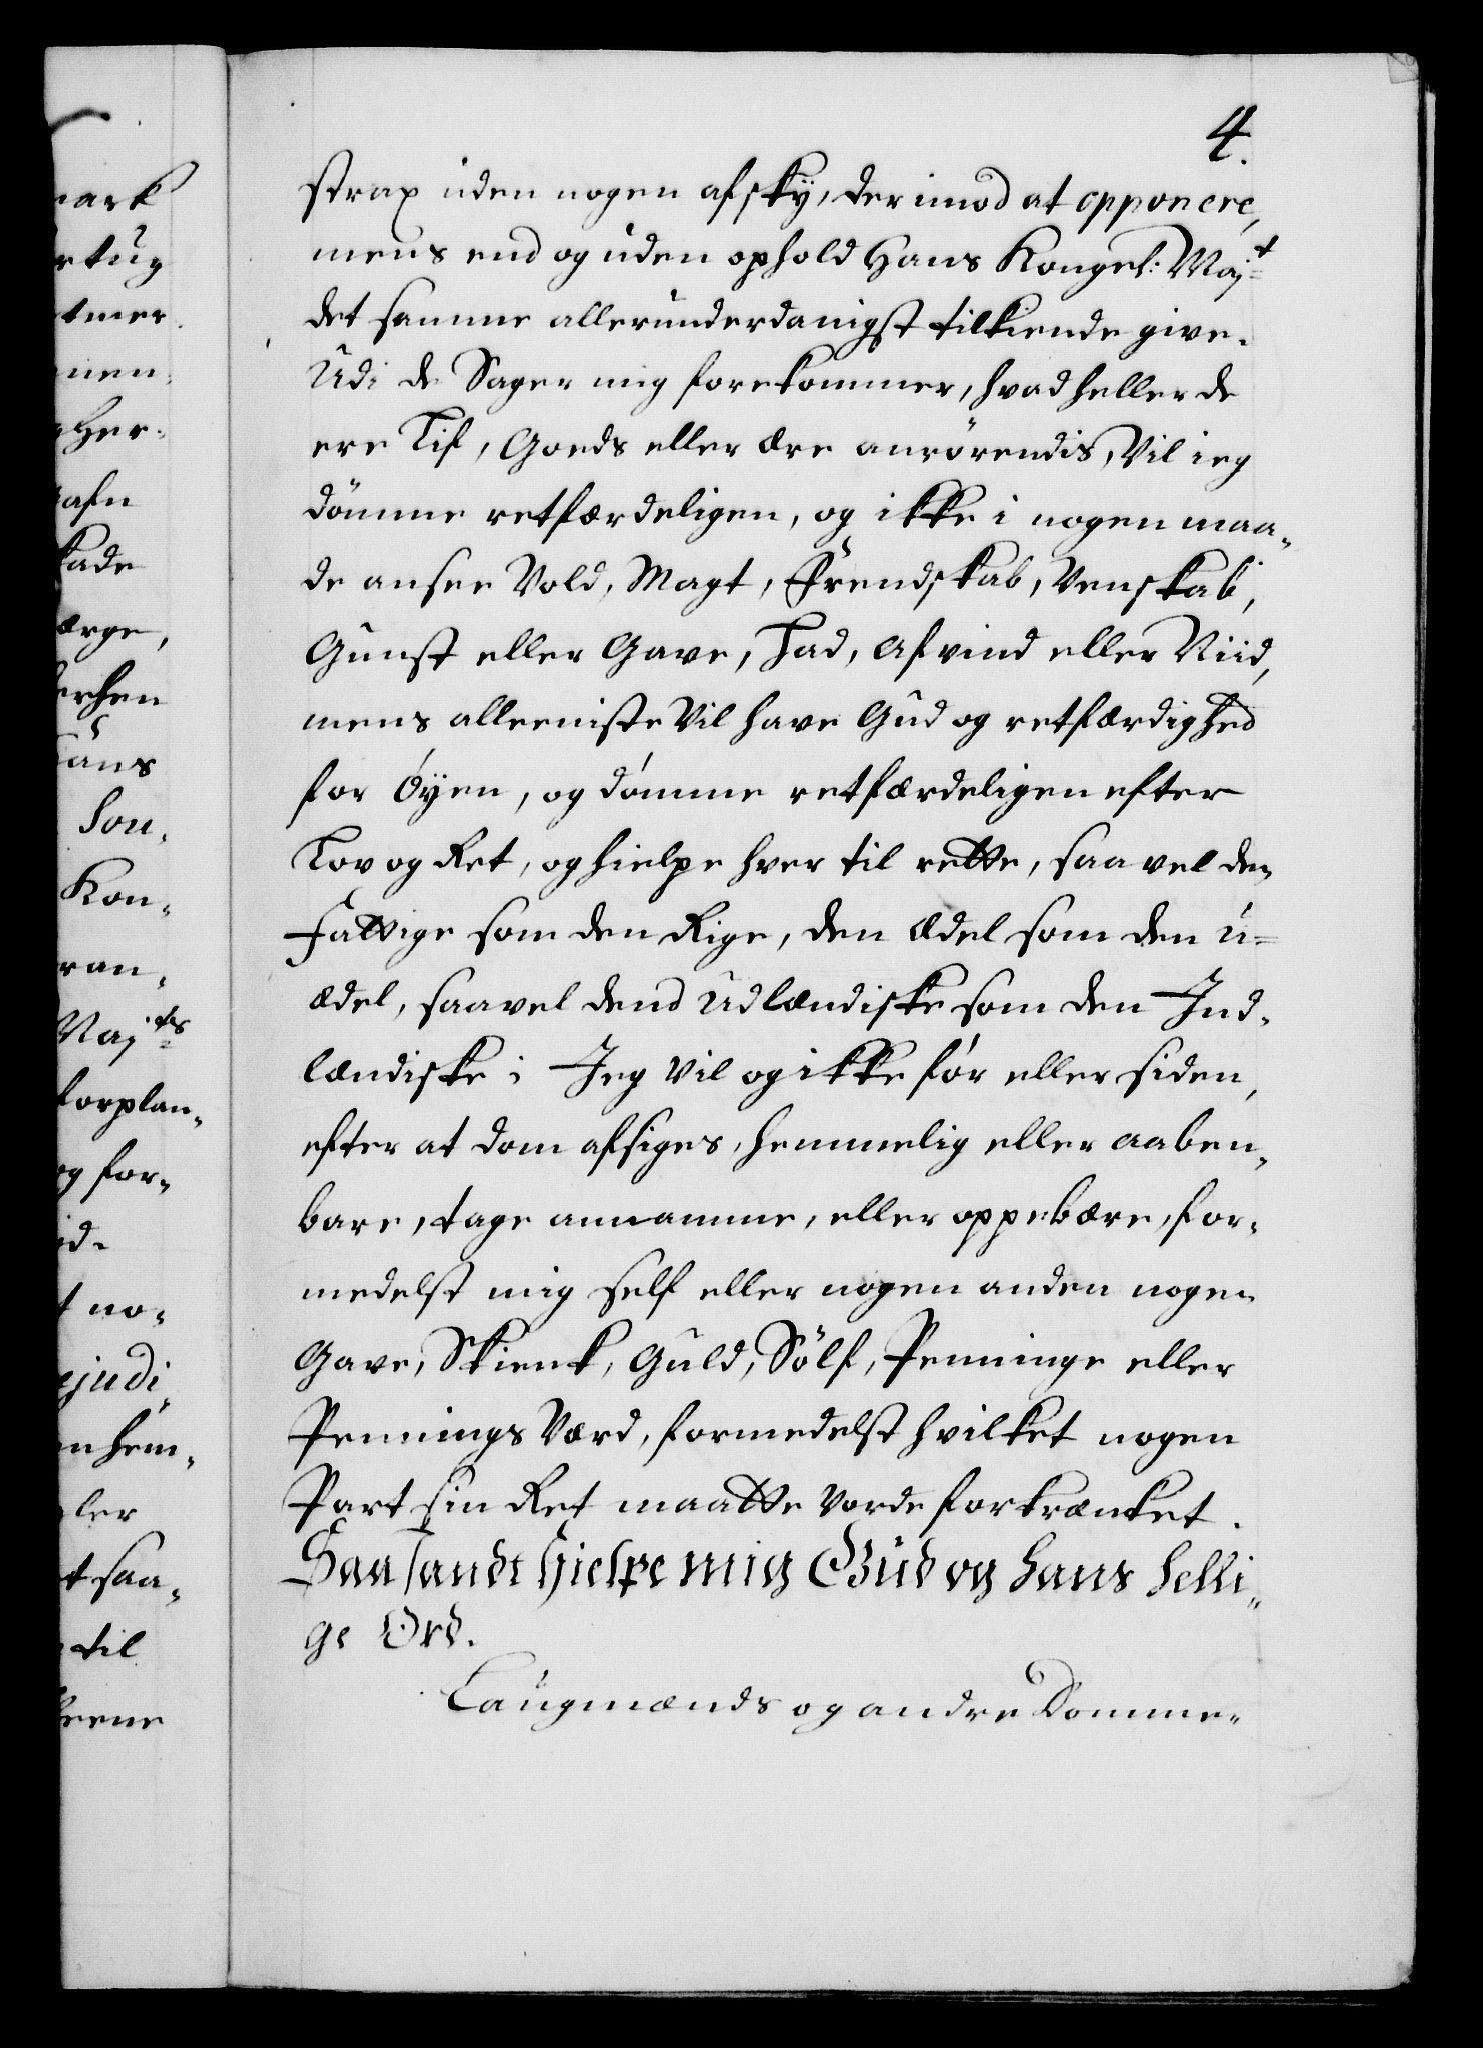 4.
strax uden nogen afsky, der imod at opponere,
mens end og uden ophold Hans Kongel: Majt
det samme allerunderdanigst tilkiende give.
Udi de Sager mig forekommer, hvad heller de
ere Lif, Goeds eller ære anrörendis, Vil ieg
dömme retfærdeligen, og ikke i nogen maa„
de ansee Vold, Magt, Frendskab, Venskab,
Gunst eller Gave, Had, Afvind eller Niid,
mens alleeniste Vil have Gud og retfærdighed
for Øyen, og dømme retfærdeligen efter
Lov og Ret, og hielpe hver til rette, saa vel den
Fattige som den Rige, den Ædel som den u=
ædel, saavel dend Udlændiske som den Ind„
lændiske; Jeg Vil og ikke før eller siden,
efter at dom afsiges, hemmelig eller aaben„
bare, tage annamme, eller oppebære, for„
medelst mig self eller nogen anden nogen
Gave, Skienk, Guld, Sölf, Penninge eller
Pennings Værd, formedelst hvilket nogen
Part sin Ret maatte Vorde forkrænket.
Saa sandt hielpe mig Gud og hans helli„
ge Ord.
Laugmænds og andre Domme„
mark
rtug
tmer
men„
Her„
afn
kade
ærge,
erhen
Hans
Sou„
Kon„
ran„
Majts
forplan„
og for„
id„
t no„
ejudi„
nhem„
ler
t saa„
til
eene